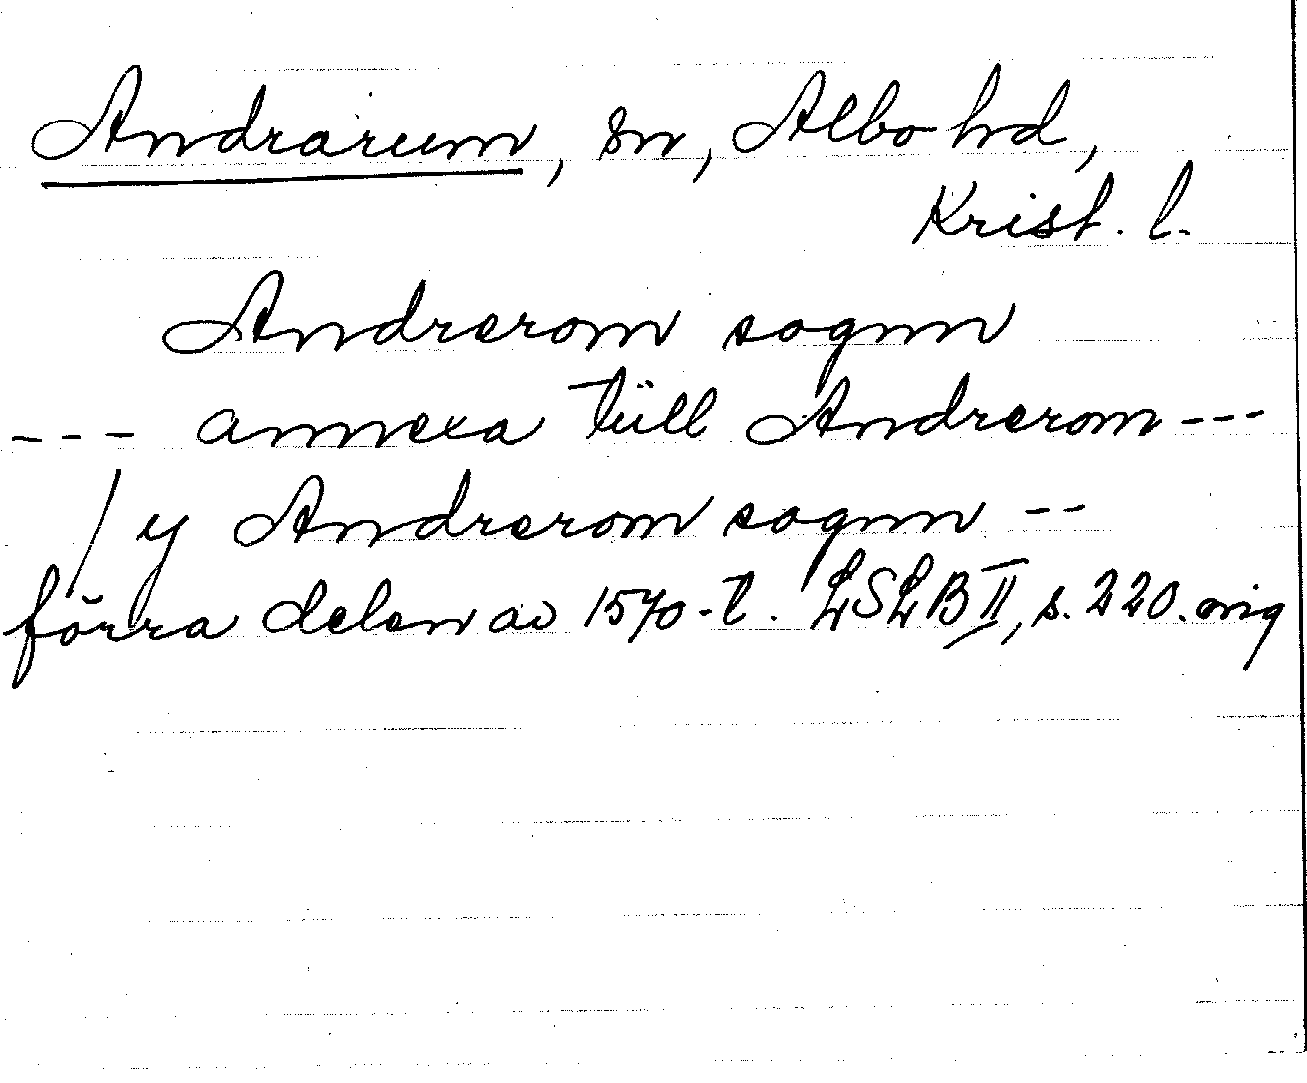 Andrarum, sn, Albo hd,
Krist. l.
Andrerom sognn
--- annexa tüll Andrerom ---
/ y Andrerom sognn --
förra delen av 1570-t. LSLB II, s. 220. orig